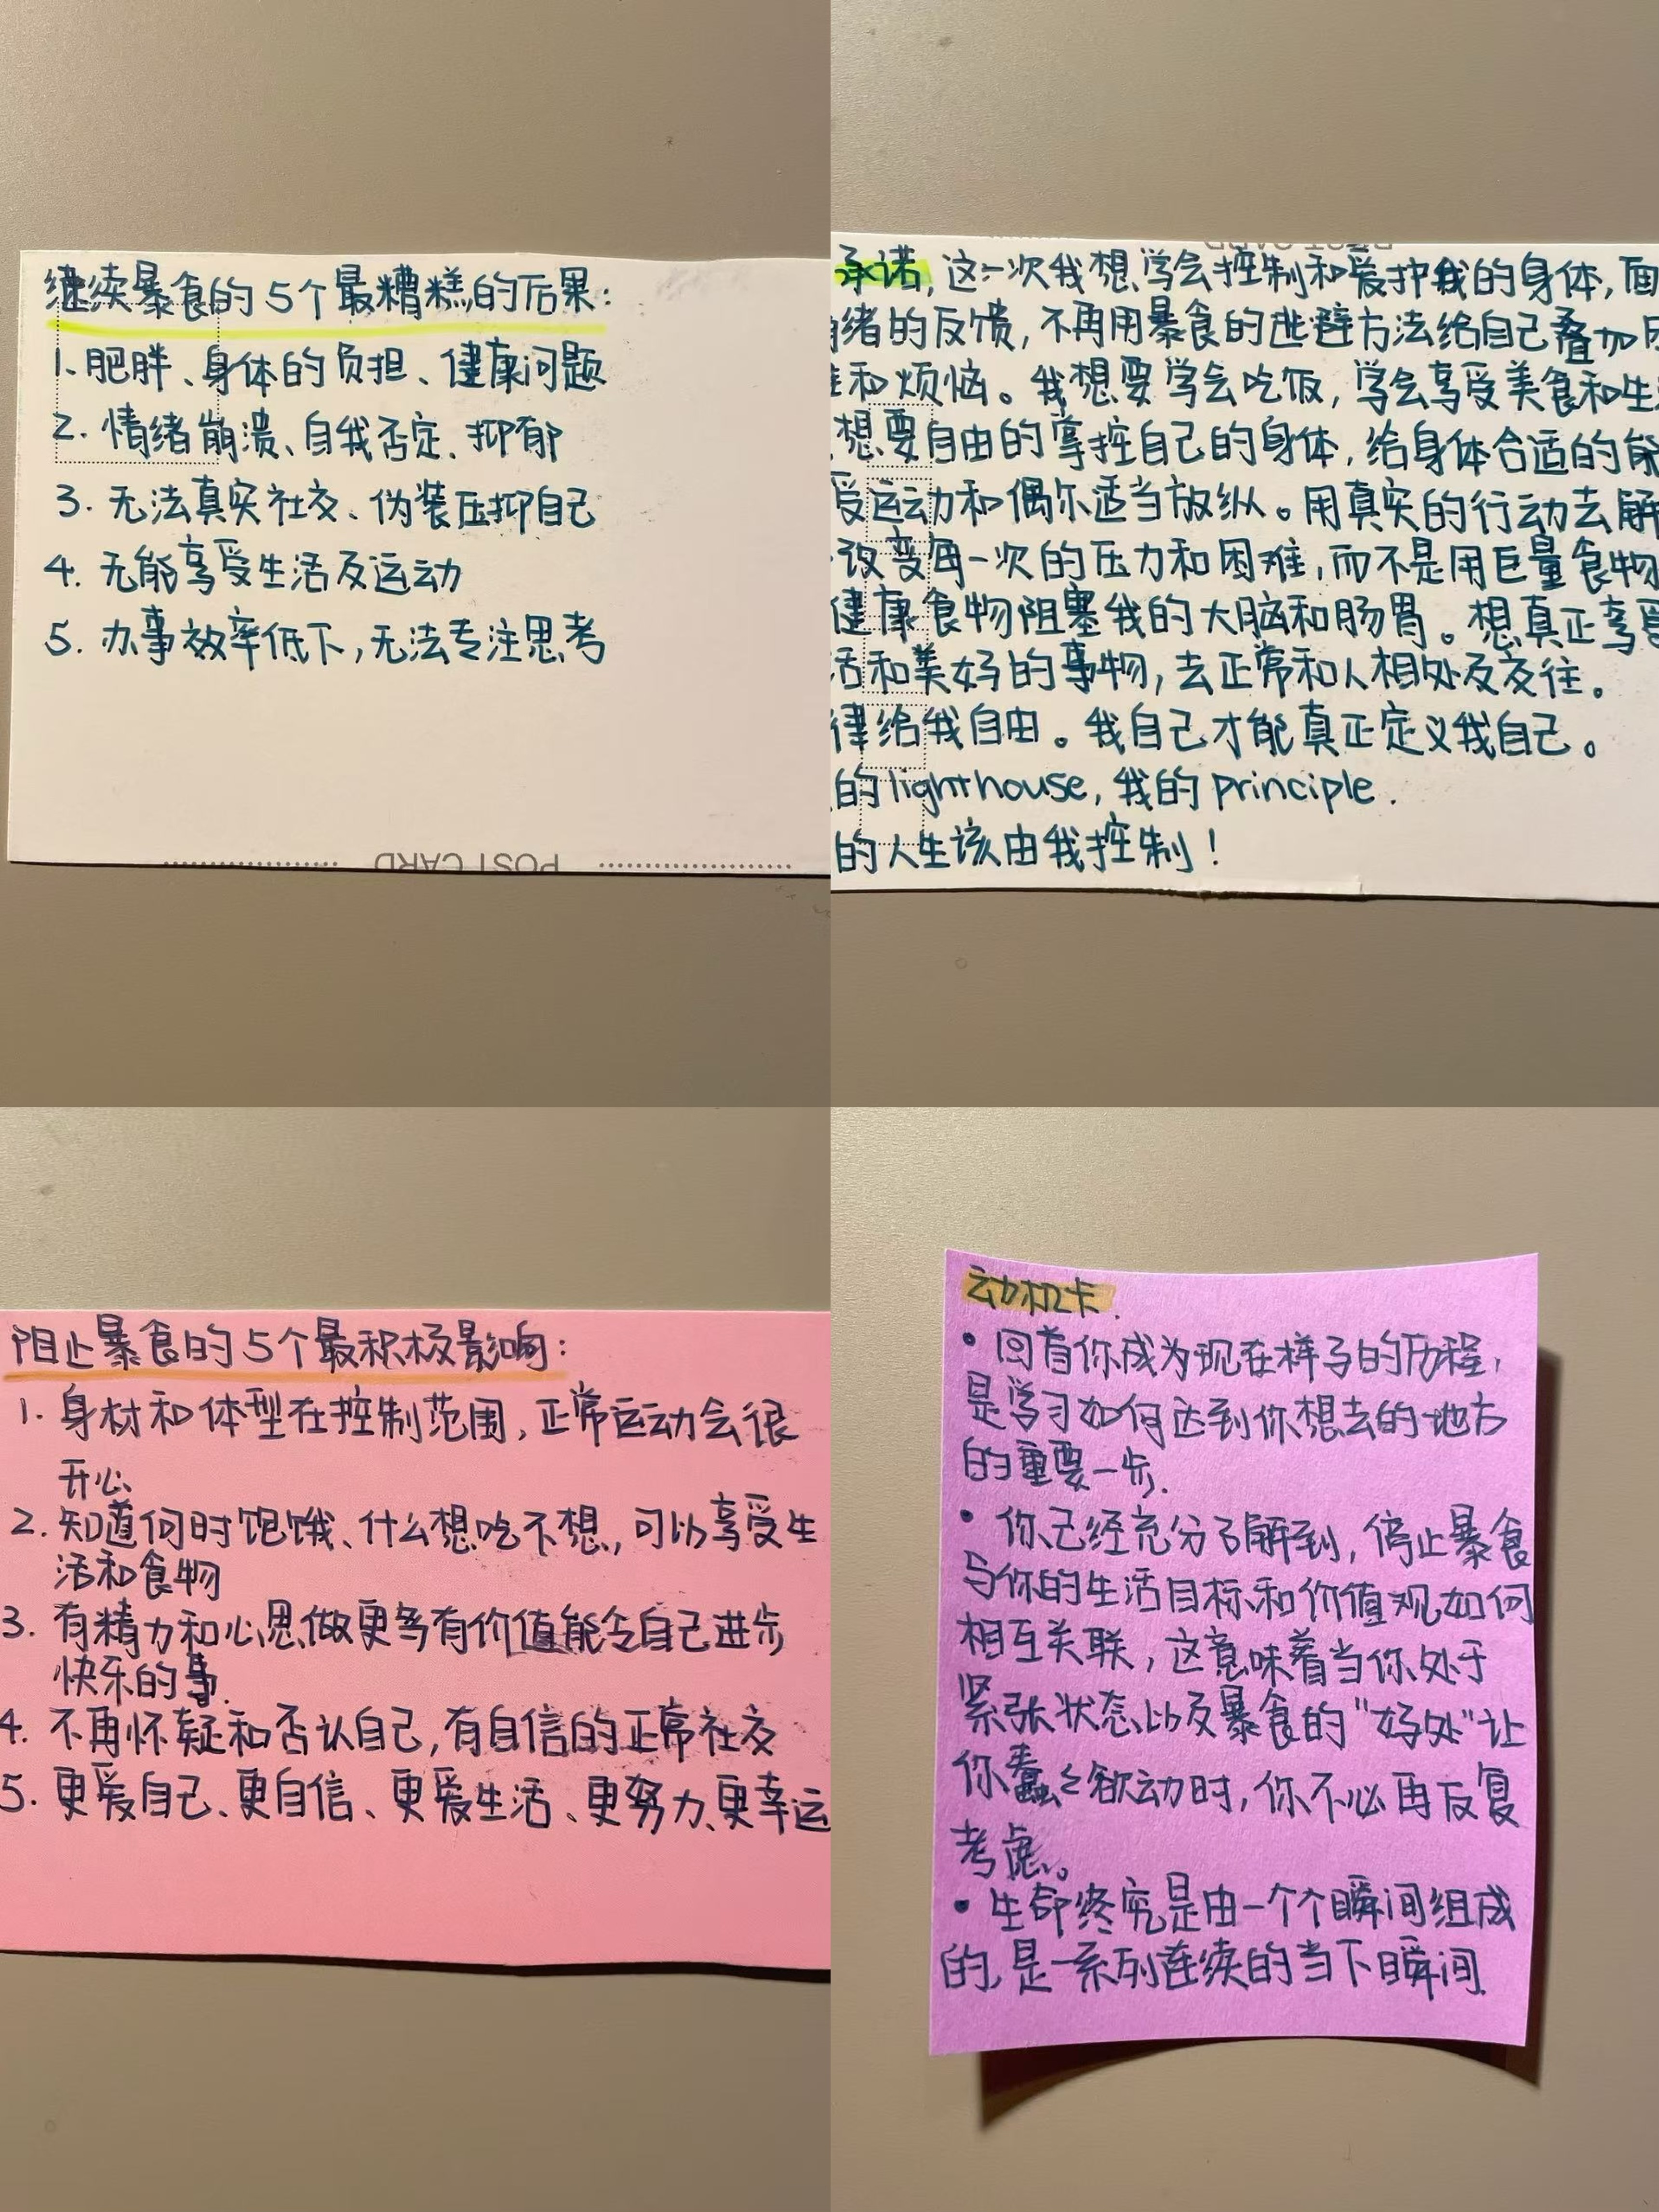 继续暴食的5个最糟糕的后果:
1.肥胖、身体的负担、健康问题
2.情绪崩溃、自我否定、抑郁
3.无法真实社交、伪装压抑自己
4.无能享受生活及运动
5.办事效率低下,无法专注思考
POST CARD
POST CARD
承诺,这一次我想学会控制和爱护我的身体,面
绪的反馈,不再用暴食的逃避方法给自己叠加
和烦恼。我想要学会吃饭,学会享受美食和生
想要自由的掌控自己的身体,给身体合适的能
受运动和偶尔适当放纵。用真实的行动去解
改变每一次的压力和困难,而不是用巨量食物
健康食物阻塞我的大脑和肠胃。想真正享受
活和美好的事物,去正常和人相处及交往。
律给我自由。我自己才能真正定义我自己。
的lighthouse,我的principle.
的人生该由我控制!
阻止暴食的5个最积极影响:
1.身材和体型在控制范围,正常运动会很
开心
2.知道何时饱饿、什么想吃不想,可以享受生
活和食物
3.有精力和心思做更多有价值能令自己进步
快乐的事.
4.不再怀疑和否认自己,有自信的正常社交
5.更爱自己、更自信、更爱生活、更努力、更幸运
动机卡.
•回首你成为现在样子的历程,
是学习如何达到你想去的地方
的重要一步.
•你已经充分了解到,停止暴食
与你的生活目标和价值观如何
相互关联,这意味着当你处于
紧张状态以及暴食的"好处"让
你蠢々欲动时,你不必再反复
考虑。
•生命终究是由一个个瞬间组成
的,是一系列连续的当下瞬间.